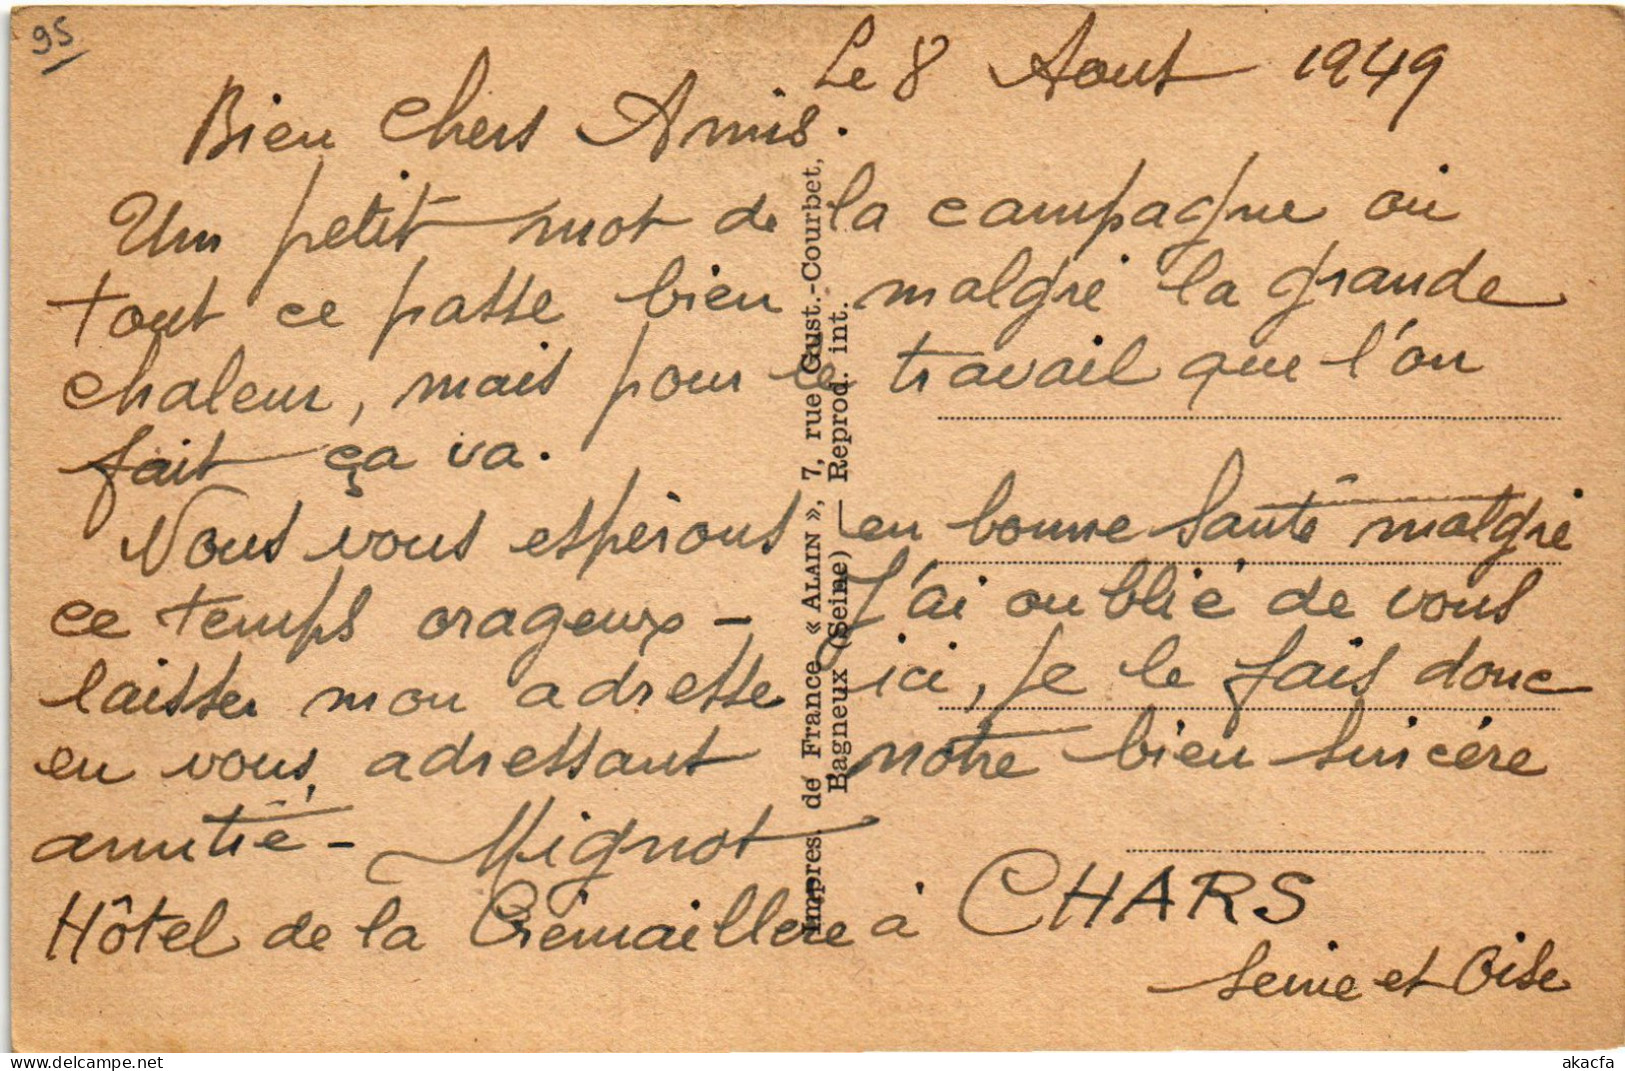 95
Le 8 Aout 1949
Bien Chers Amis.
Un petit mot de la campagne où
tout ce passe bien malgré la grande
chaleur, mais pour le travail que l'on
fait ça va.
Nous vous espérons en bonne santé malgré
ce temps orageux - J'ai oublié de vous
laisser mon adresse ici, je le fais donc
en vous adressant notre bien sincère
amitié - Mignot
Hôtel de la Crémaillere à CHARS
Seine et Oise
Impres. de France « ALAIN », 7, rue Gust.-Courbet,
Bagneux (Seine) — Reprod. int.
delcampe.net
akacfa